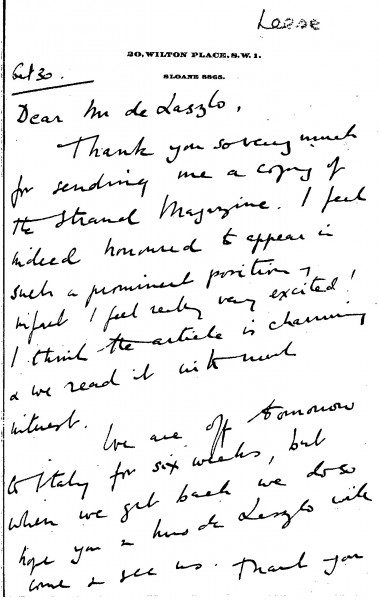 Leese
20, WILTON PLACE, S.W.1.
Oct 30.
SLOANE 8865.
Dear Mr de Laszlo,
Thank you so very much
for sending me a copy of
the Strand Magazine. I feel
indeed honoured to appear in
such a prominent position,
infact I feel really very excited!
I think the article is charming
& we read it with much
interest.
We are off tomorrow
to Italy for six weeks, but
when we get back we do so
hope you & Mrs de Laszlo will
come & see us. Thank you